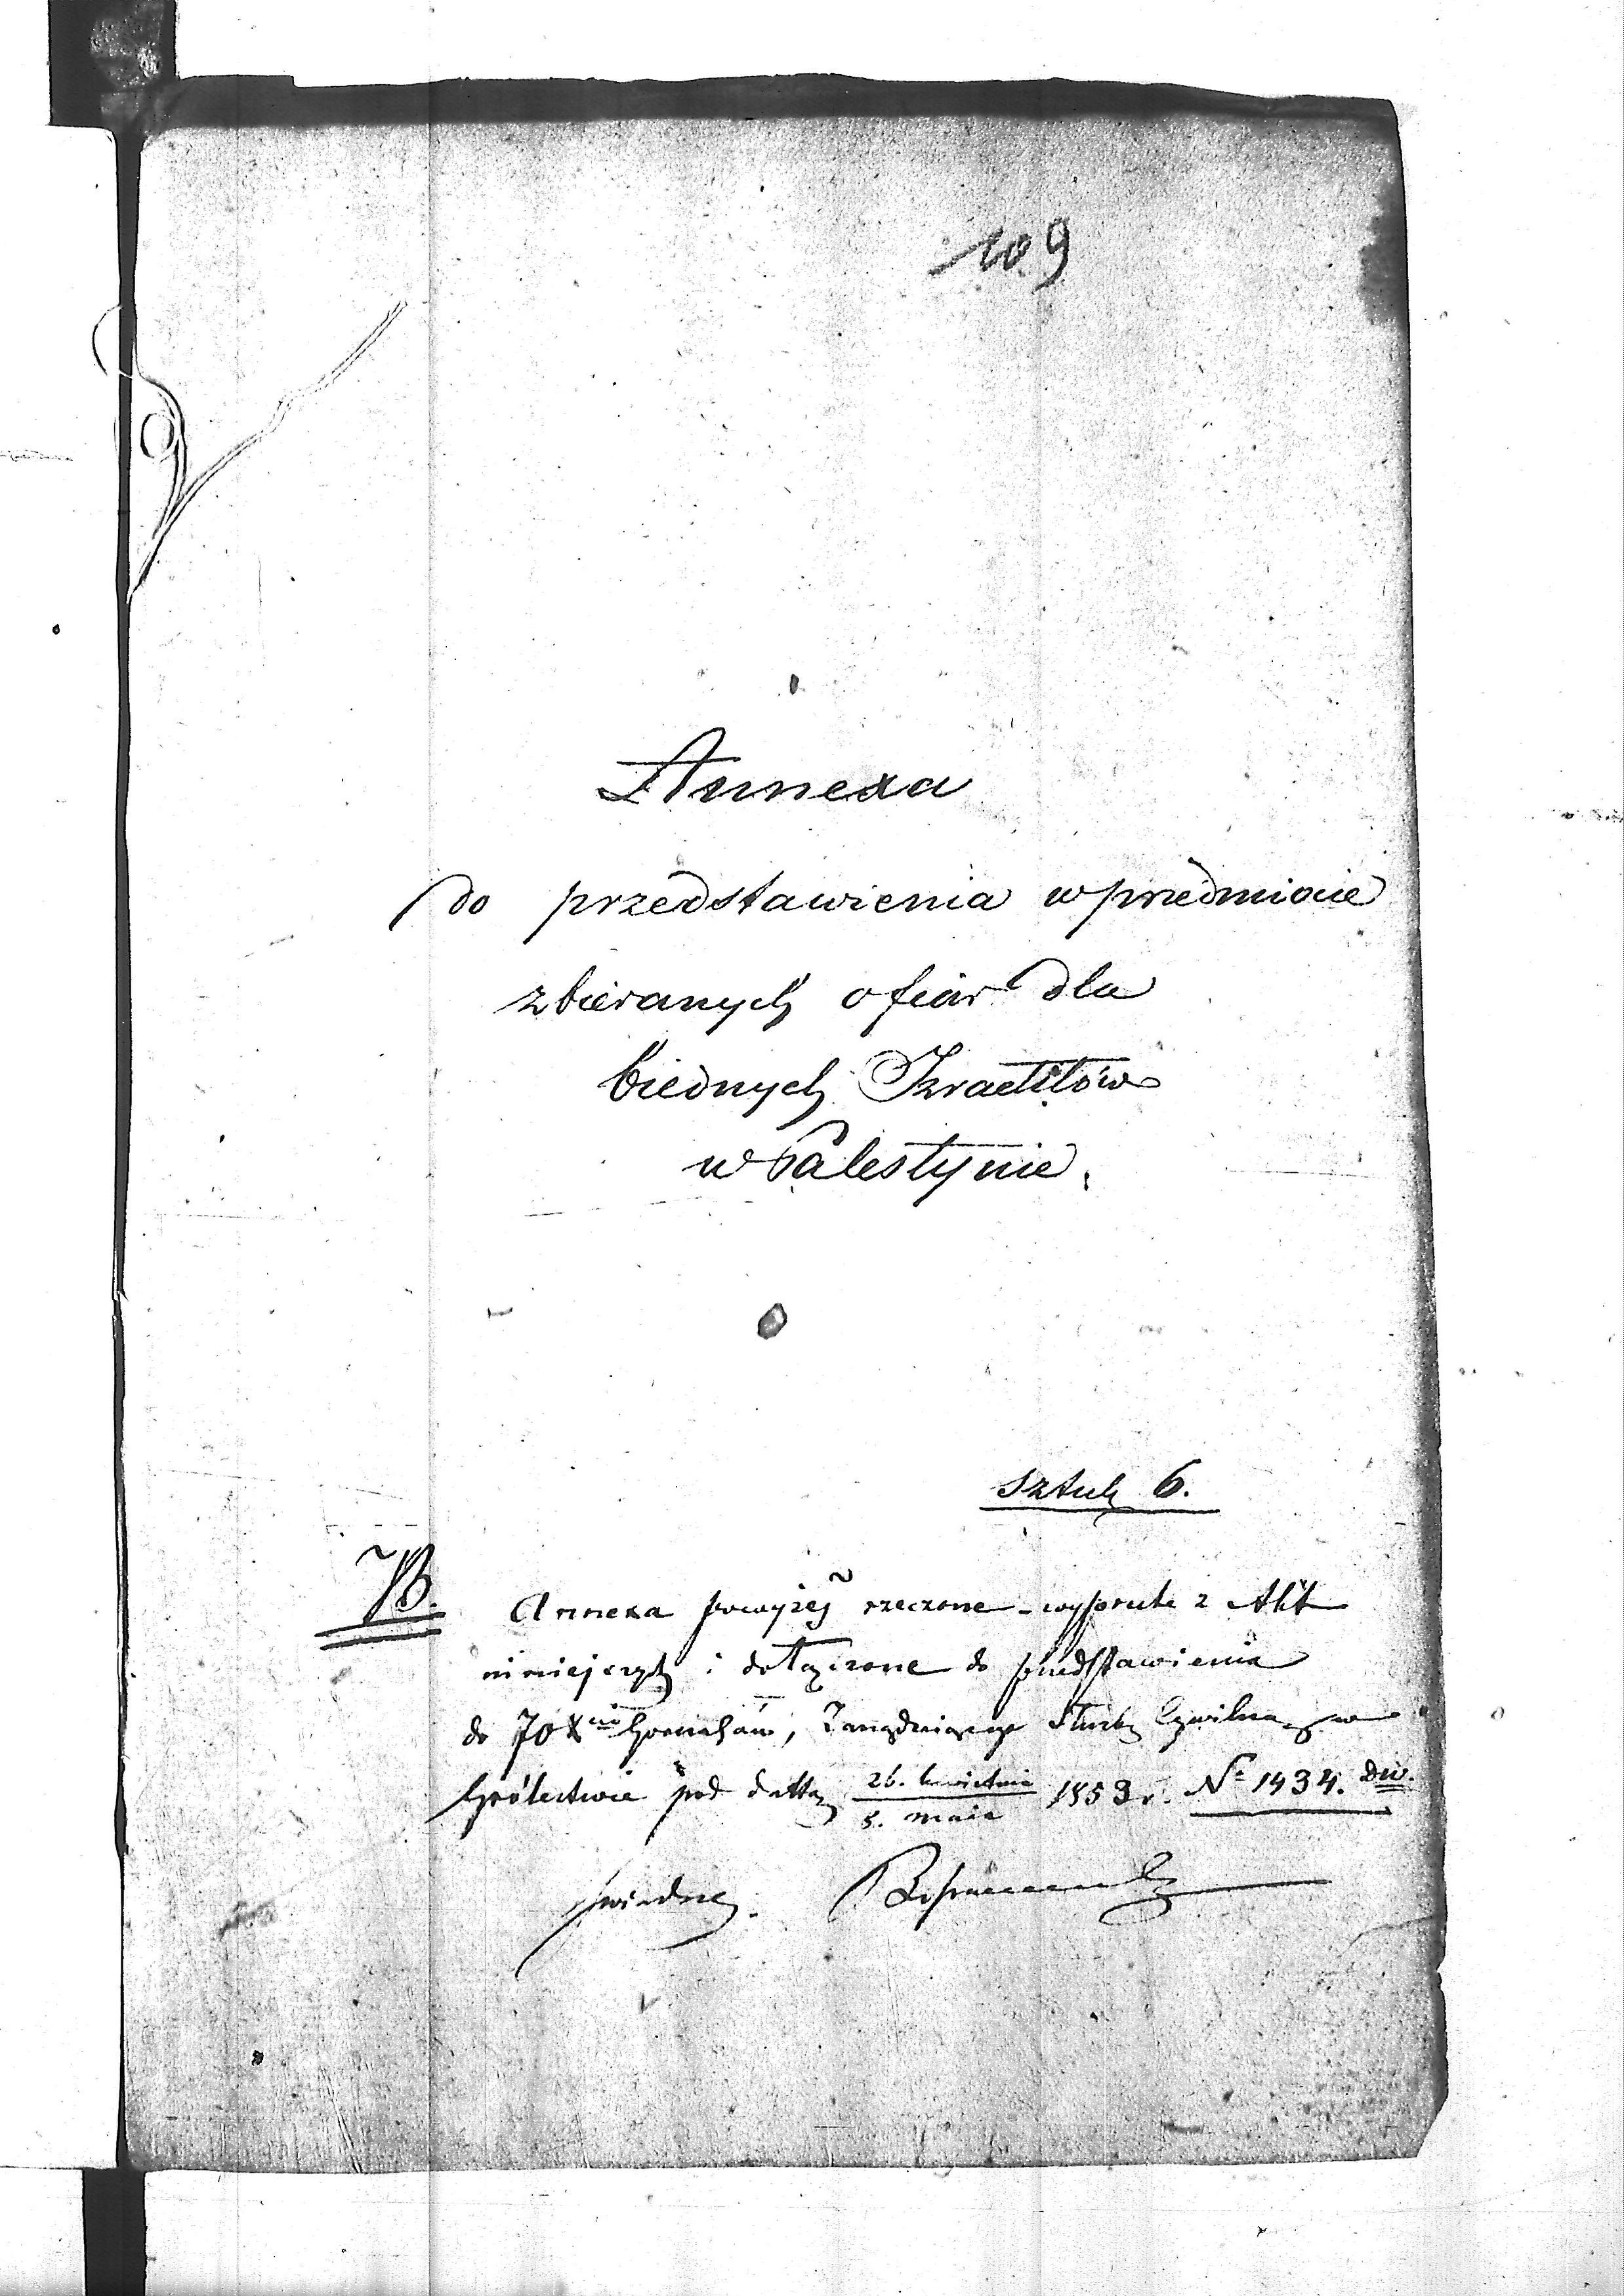 109
Annexa
do przedstawienia w przedmiocie
zbieranych ofiar dla
biednych Izraelitów
w Palestynie.
sztuk 6.
NB. Annexa powyżej rzeczone wyprute z Akt
niniejszych i dołączone do przedstawienia
do JO Xcia Gorczakowa, Zarządzającego Służbą Cywilną w
Królestwie pod dattą 26. kwietnia / 8. maia 1853 r. No 1434. Dw.
świadczę.